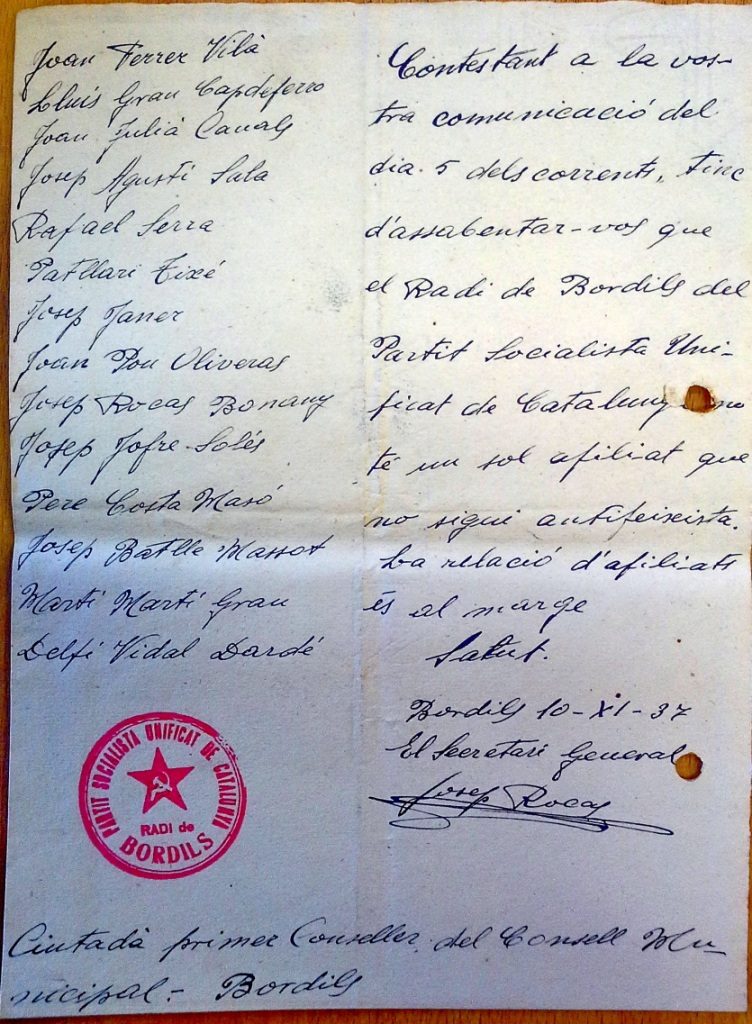 Joan Ferrer Vilà
Lluís Grau Capdeferro
Joan Julià Canals
Josep Agustí Sala
Rafael Serra
Patllari Tixé
Josep Janer
Joan Pou Oliveras
Josep Rocas Bonany
Josep Jofre Solés
Pere Costa Masó
Josep Batlle Massot
Martí Martí Grau
Delfí Vidal Dardé
Contestant a la vos-
tra comunicació del
dia 5 dels corrents, tinc
d'assabentar-vos que
el Radi de Bordils del
Partit Socialista Uni-
ficat de Catalunya no
té un sol afiliat que
no sigui antifeixista.
La relació d'afiliats
és al marge
Salut.
Bordils 10-XI-37
El Secretari General
Josep Rocas
PARTIT SOCIALISTA UNIFICAT DE CATALUNYA
RADI de
BORDILS
Ciutadà primer Conseller del Consell Mu-
nicipal.- Bordils